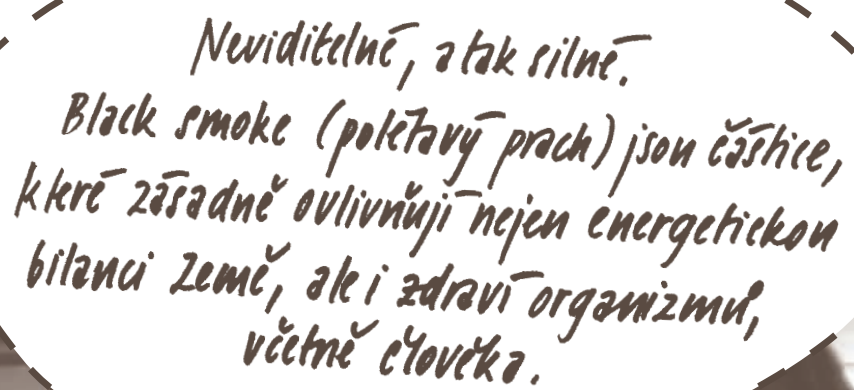 Neviditelné, a tak silné.
Black smoke (poletavý prach) jsou částice,
které zásadně ovlivňují nejen energetickou
bilanci Země, ale i zdraví organizmů,
včetně člověka.